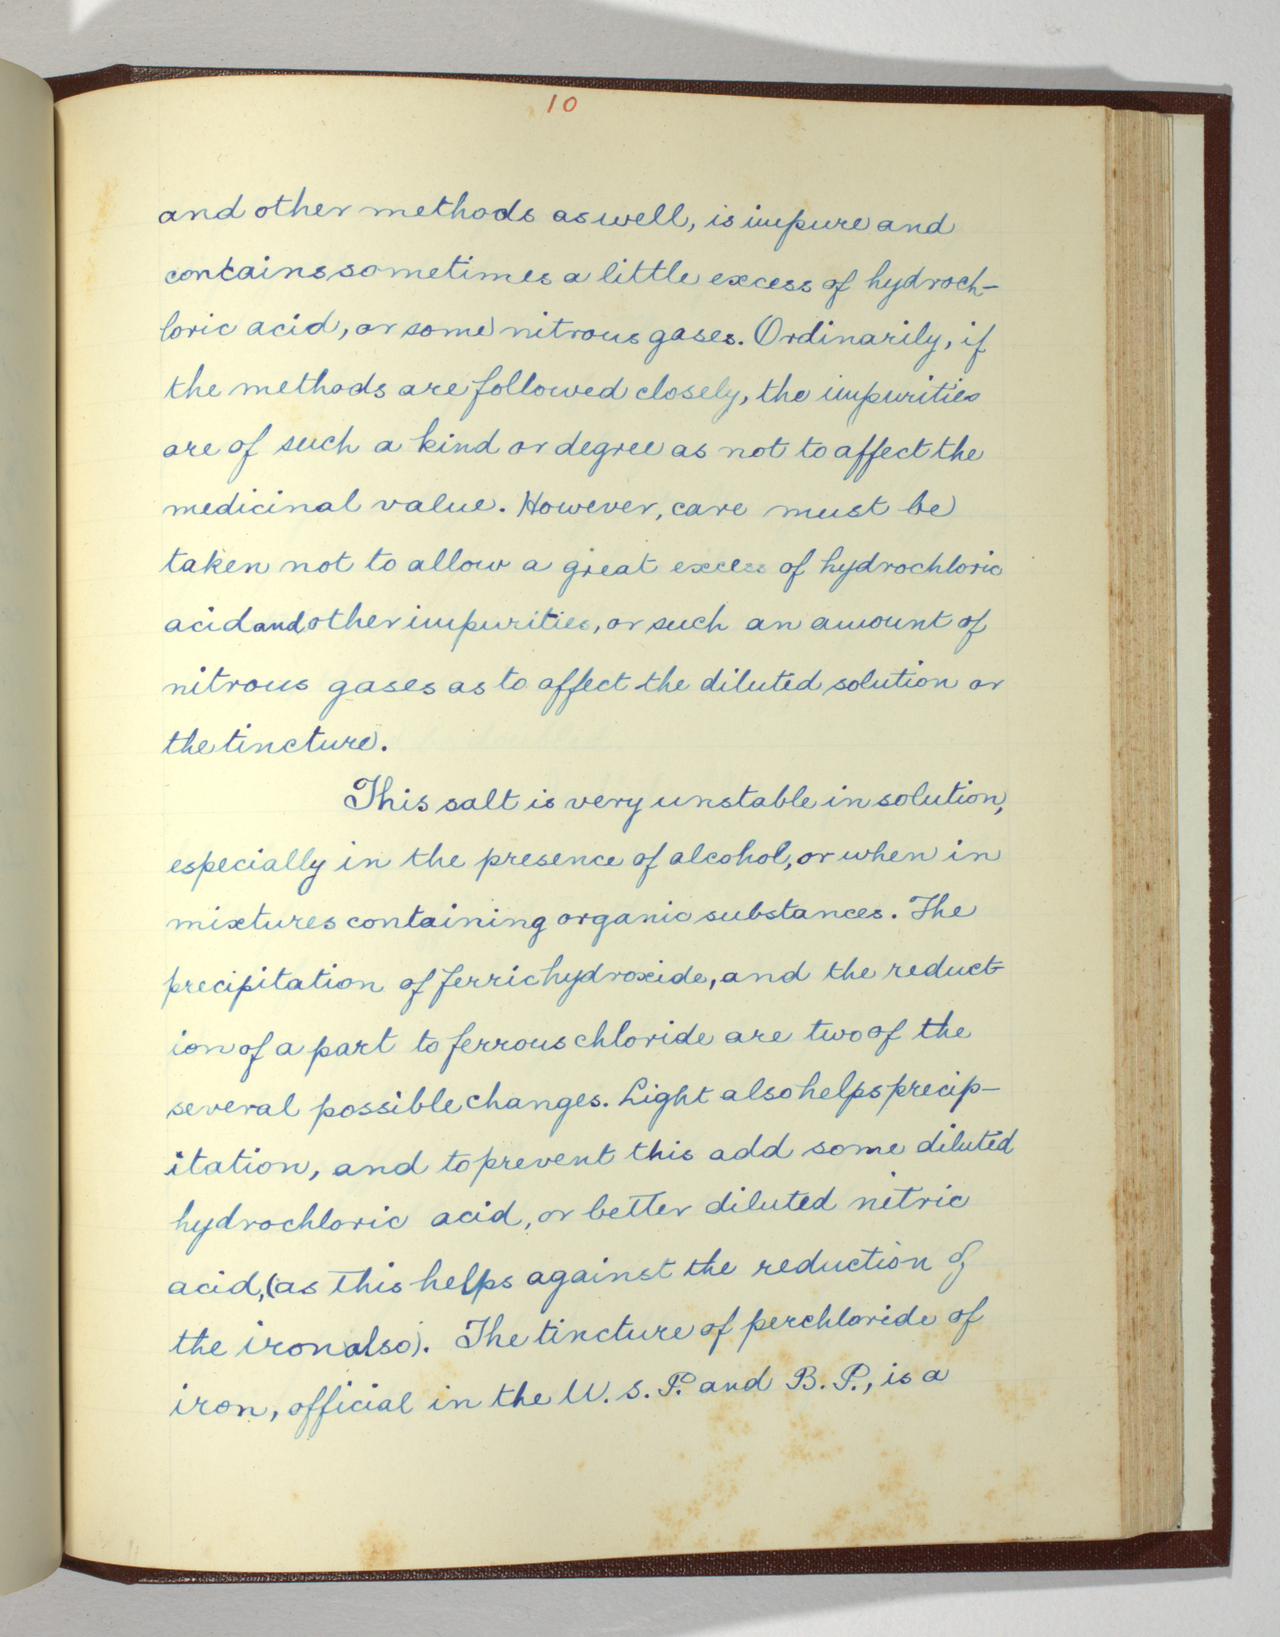 10
and other methods as well, is impure and
contains sometimes a little excess of hydroch-
loric acid, or some nitrous gases. Ordinarily, if
the methods are followed closely, the impurities
are of such a kind or degree as not to affect the
medicinal value. However, care must be
taken not to allow a great excess of hydrochloric
acid and other impurities, or such an amount of
nitrous gases as to affect the diluted solution or
the tincture.
This salt is very unstable in solution,
especially in the presence of alcohol, or when in
mixtures containing organic substances. The
precipitation of ferric hydroxide, and the reduct-
ion of a part to ferrous chloride are two of the
several possible changes. Light also helps precip-
itation, and to prevent this add some diluted
hydrochloric acid, or better diluted nitric
acid, (as this helps against the reduction of
the iron also). The tincture of perchloride of
iron, official in the U. S. P. and B. P., is a